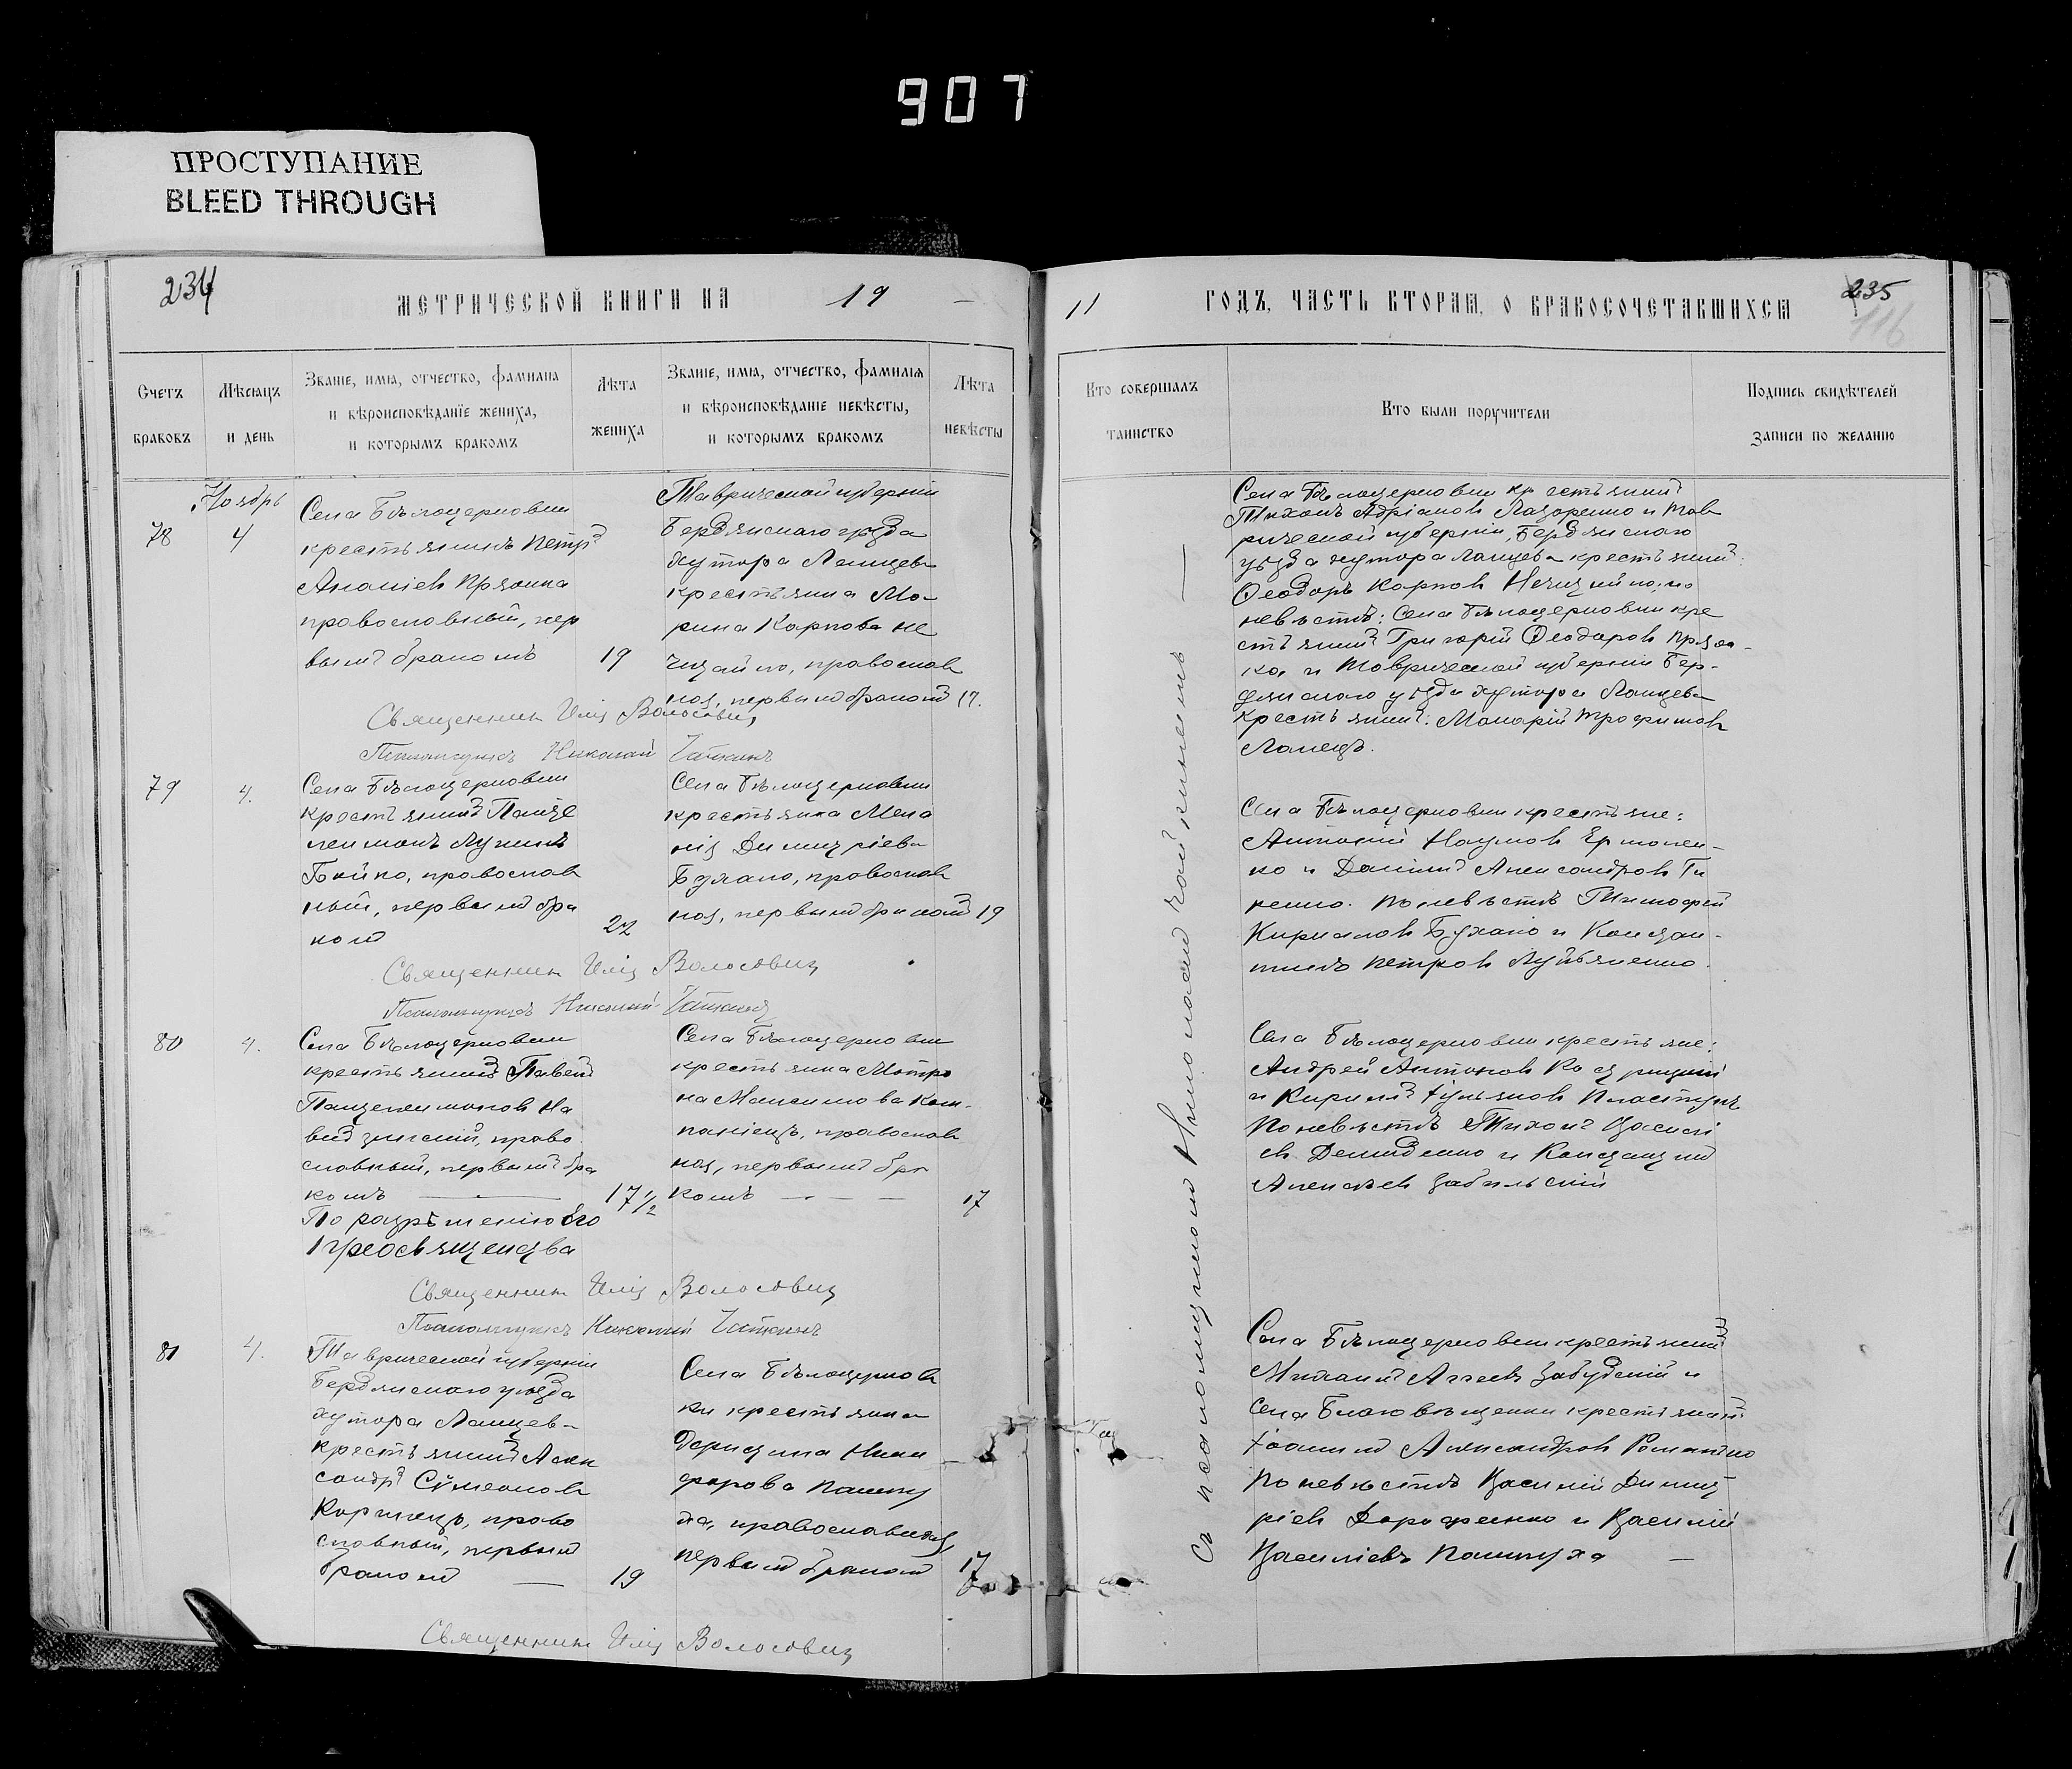 907
ПРОСТУПАНИЕ
BLEED THROUGH
234
МЕТРИЧЕСКОЙ КНИГИ НА 19
11 ГОДЪ, ЧАСТЬ ВТОРАЯ, О БРАКОСОЧЕТАВШИХСЯ
235
116
Счетъ браковъ
Мѣсяцъ и день
Званіе, имя, отчество, фамилія
и вѣроисповѣданіе жениха,
и которымъ бракомъ
Лѣта жениха
Званіе, имя, отчество, фамилія
и вѣроисповѣданіе невѣсты,
и которымъ бракомъ
Лѣта невѣсты
Кто совершалъ
таинство
Кто были поручители
Подпись свидѣтелей
записи по желанію
Ноябрь
78
4
Села Бѣлоцерковки
крестьянинъ Петръ
Ананіев
православный, пер
вымъ бракомъ
19
Таврической губерніи
Бердянскаго уѣзда
хутора Ланцева
крестьянка Ма-
рина Карпова Не
чицайло, православ
ная, первымъ бракомъ 17.
Села Бѣлоцерковки крестьянинъ
Тихонъ Адріанов Лазоренко и Тав
рической губерніи, Бердянскаго
уѣзда хутора Ланцева крестьянинъ
Ѳеодоръ Карпов Нечицайло; по
невѣстѣ: Села Бѣлоцерковки кре
стьянинъ Григорій Ѳеодоров
ка, и Таврической губерніи Бер-
дянскаго уѣзда хутора Ланцева
крестьянинъ: Макарій Трофимов
Ланецъ.
Священникъ Илія Волосовичъ
Псаломщикъ Николай
79
4.
Села Бѣлоцерковки
крестьянинъ Панте
леимонъ Лукинъ
Бойко, православ
ный, первымъ бра
комъ
22
Села Бѣлоцерковки
крестьянка Мела
нія Димитріева
Бухало, православ
ная, первымъ бракомъ 19
Села Бѣлоцерковки крестьяне:
Антоній Наумов Ермолен-
ко и Даніилъ Александров Ги
ренко. По невѣстѣ Тимофей
Кириллов Бухало и Констан-
тинъ Петров
Священникъ Илія Волосовичъ
Псаломщикъ Николай
80
4.
Села Бѣлоцерковки
крестьянинъ Павелъ
Пантелеимонов На
православный, первымъ бра
комъ
17 1/2
По разрѣшенію Его
Преосвященства
Села Бѣлоцерковки
крестьянка Матро
на Максимова Ком-
паніецъ, православ
ная, первымъ бра
комъ
17
Села Бѣлоцерковки крестьяне:
Андрей Антонов
и Кириллъ Пластунъ
По невѣстѣ Тихонъ Василі
ев Демиденко и Константинъ
Алексѣев
Священникъ Илія Волосовичъ
Псаломщикъ Николай
81
4.
Таврической губерніи
Бердянскаго уѣзда
хутора Ланцев-
крестьянинъ Алек
сандръ Сѵмеонов
Корнецъ, право
славный, первымъ
бракомъ
19
Села Бѣлоцерков
ки крестьянка
Ники
форова
православная,
первымъ бракомъ
17
Села Бѣлоцерковки крестьянинъ
Михаилъ Аггеевъ Забудскій и
села Благовѣщенки крестьянинъ
Іоаннъ Александров Романенко
По невѣстѣ Василій Димит
ріев Дорофеенко и Василій
Василіевъ
Священникъ Илія Волосовичъ
Съ псаломщикомъ Николаемъ